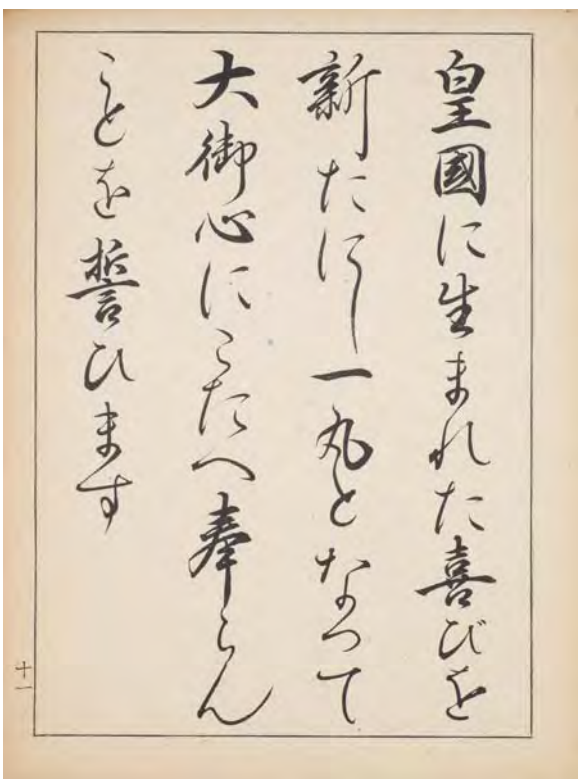 皇國に生まれた喜びを
新たにし一丸となつて
大御心にこたへ奉らん
ことを誓ひます
十一